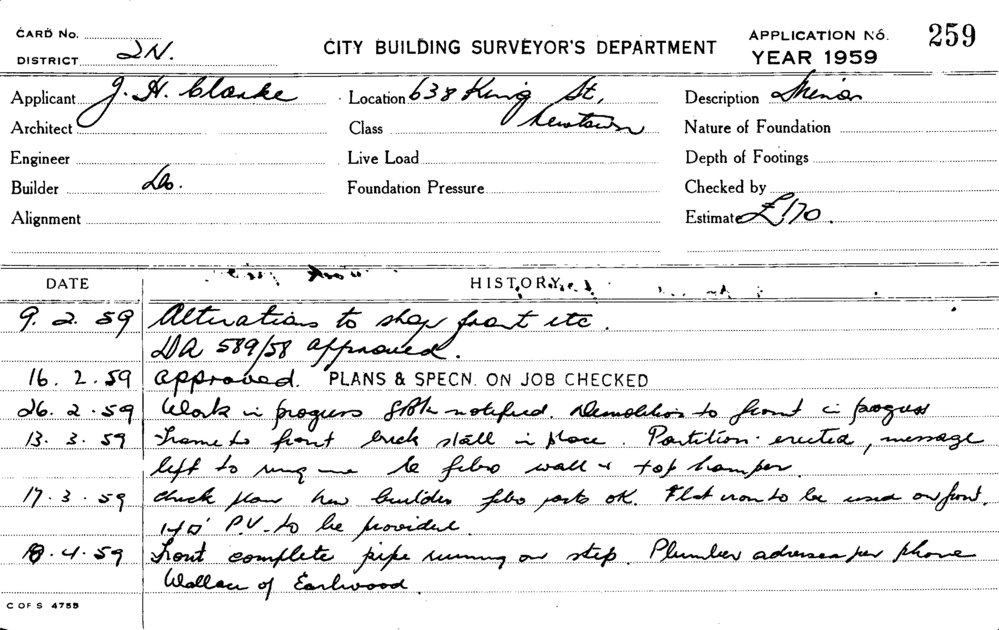 CARD No.
DISTRICT 2N.
CITY BUILDING SURVEYOR'S DEPARTMENT
APPLICATION No. 259
YEAR 1959
Applicant J. H. Clarke
Location 638 King St, Newtown
Description Minor
Architect
Class
Nature of Foundation
Engineer
Live Load
Depth of Footings
Builder Do.
Foundation Pressure
Checked by
Alignment
Estimate £170.
DATE HISTORY
9.2.59 Alterations to shop front etc.
DA 589/58 approved.
16.2.59 Approved. PLANS & SPECN. ON JOB CHECKED
26.2.59 Work in progress notified. Demolition to front in progress
13.3.59 Frame to front brick stall in place. Partition erected, message
left to ring me re fibro wall & top hamper.
17.3.59 Check plan builder fibro OK. Flat iron to be used on front.
P.V. to be provided
8.4.59 Front complete pipe running on step. Plumber per phone
Wallace of Earlwood.
C OF S 4755